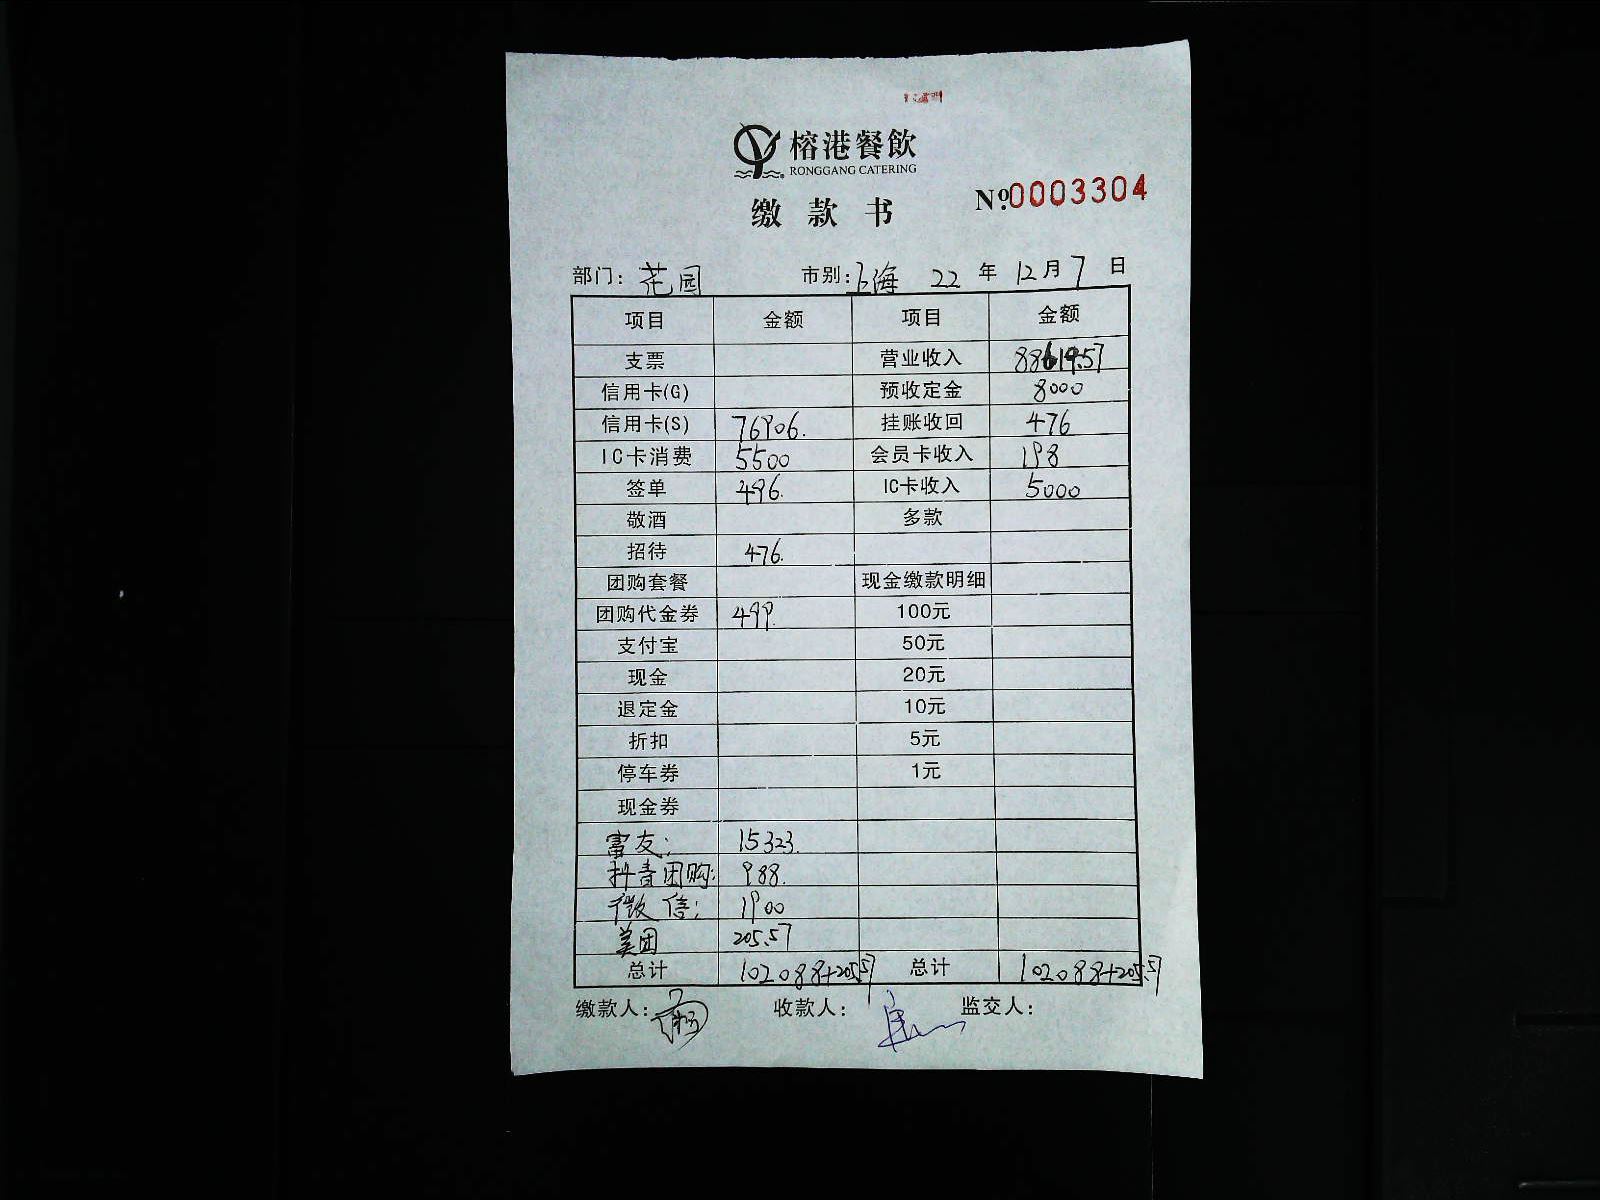 榕港餐飲
RONGGANG CATERING
缴款书
Nº0003304
部门: 花园 市别: 上海 22 年 12 月 7 日
项目 金额 项目 金额
支票 营业收入 88619.57
信用卡(G) 预收定金 8000
信用卡(S) 76906. 挂账收回 476
IC卡消费 5500 会员卡收入 198
签单 496. IC卡收入 5000
敬酒 多款
招待 476.
团购套餐 现金缴款明细
团购代金券 499.
100元
支付宝 50元
现金 20元
退定金 10元
折扣 5元
停车券 1元
现金券
富友: 15323.
抖音团购: 988.
微信: 1900
美团 205.57
总计 102088+205.57 总计 102088+205.57
缴款人: 收款人: 监交人: